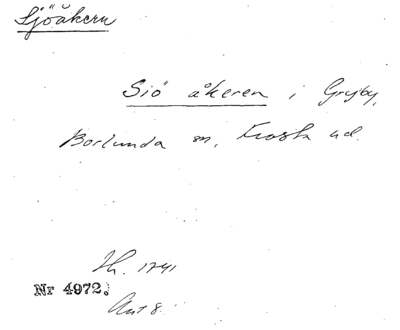 Sjöåkern
Siö åkeren i Gryby,
Borlunda sn, Frosta hd.
Th. 1741
Nr 4972.
Akt 8.